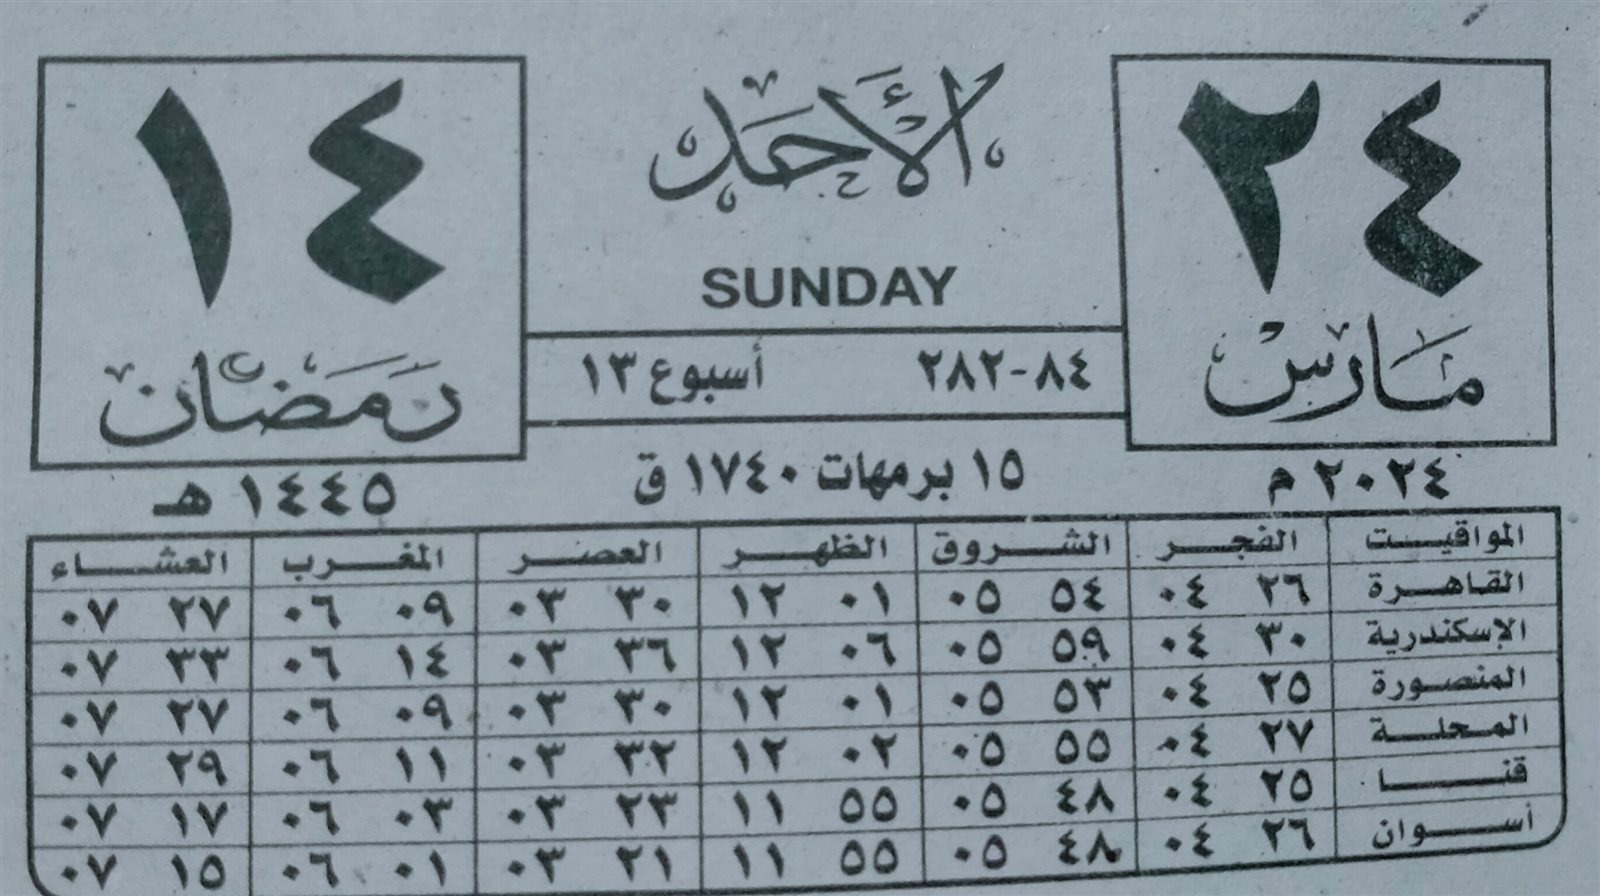 ٢٤ الأحد ١٤
SUNDAY
مارس رمضان
٨٤-٢٨٢ أسبوع ١٣
٢٠٢٤ م ١٥ برمهات ١٧٤٠ ق ١٤٤٥ هـ
المواقيت الفجر الشروق الظهر العصر المغرب العشاء
القاهرة ٢٦ ٠٤ ٥٤ ٠٥ ٠١ ١٢ ٣٠ ٠٣ ٠٩ ٠٦ ٢٧ ٠٧
الإسكندرية ٣٠ ٠٤ ٥٩ ٠٥ ٠٦ ١٢ ٣٦ ٠٣ ١٤ ٠٦ ٣٣ ٠٧
المنصورة ٢٥ ٠٤ ٥٣ ٠٥ ٠١ ١٢ ٣٠ ٠٣ ٠٩ ٠٦ ٢٧ ٠٧
المحلة ٢٧ ٠٤ ٥٥ ٠٥ ٠٢ ١٢ ٣٢ ٠٣ ١١ ٠٦ ٢٩ ٠٧
قنا ٢٥ ٠٤ ٤٨ ٠٥ ٥٥ ١١ ٢٣ ٠٣ ٠٣ ٠٦ ١٧ ٠٧
أسوان ٢٦ ٠٤ ٤٨ ٠٥ ٥٥ ١١ ٢١ ٠٣ ٠١ ٠٦ ١٥ ٠٧